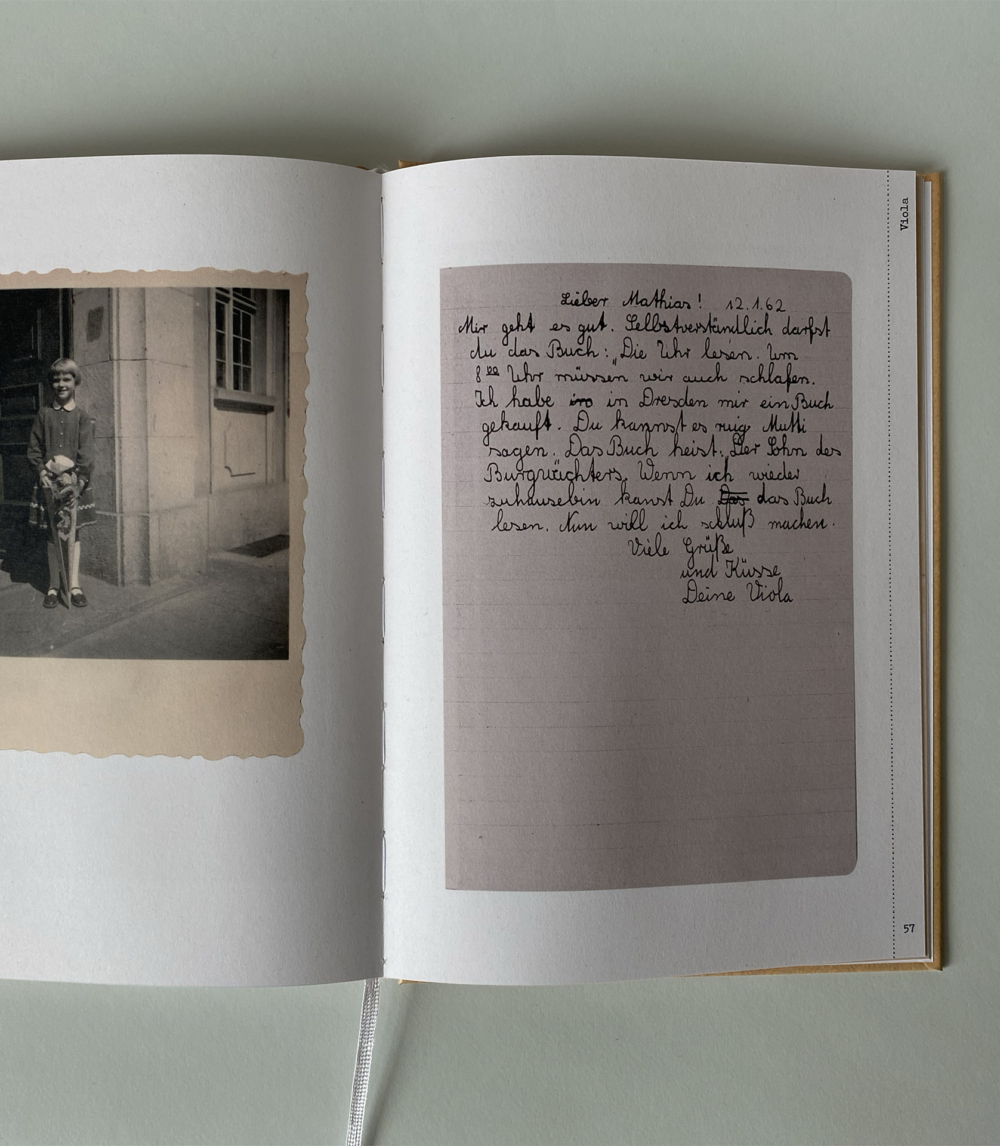 Lieber Mathias! 12.1.62
Mir geht es gut. Selbstverständlich darfst
du das Buch: „Die Uhr lesen. Um
8 00 Uhr müssen wir auch schlafen.
Ich habe in Dresden mir ein Buch
gekauft. Du kannst es ruig Mutti
sagen. Das Buch heist: Der Sohn des
Wenn ich wieder
zuhausebin kanst Du das Buch
lesen. Nun will ich schluß machen.
Viele Grüße
und Küsse
Deine Viola
Viola
57